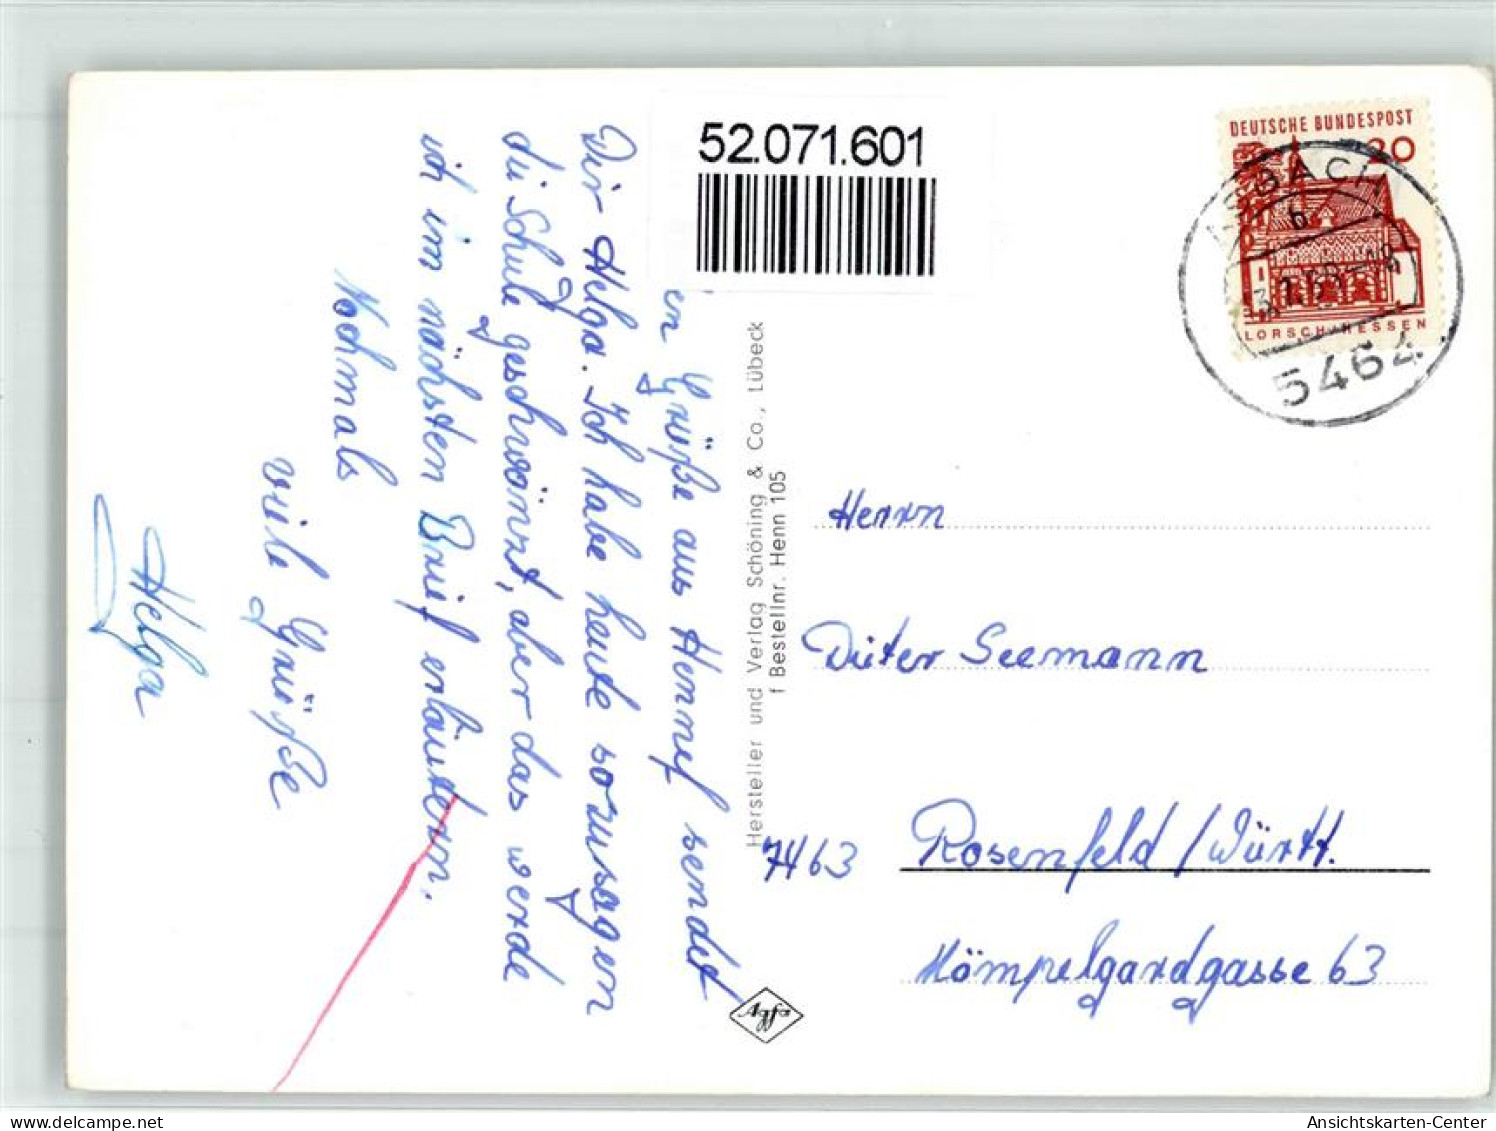 52.071.601
en Grüße aus Hennef sendet
Dir Helga. Ich habe heute sozusagen
die Schule geschwänzt, aber das werde
ich im nächsten Brief erläutern.
Nochmals
viele Grüße
Helga
Hersteller und Verlag Schöning & Co., Lübeck
f Bestellnr. Henn 105
Agfa
DEUTSCHE BUNDESPOST
20
LORSCH/HESSEN
BACH
b
5464
Herrn
Dieter Seemann
7463 Rosenfeld/Württ.
Mömpelgardgasse 63
delcampe.net
Ansichtskarten-Center